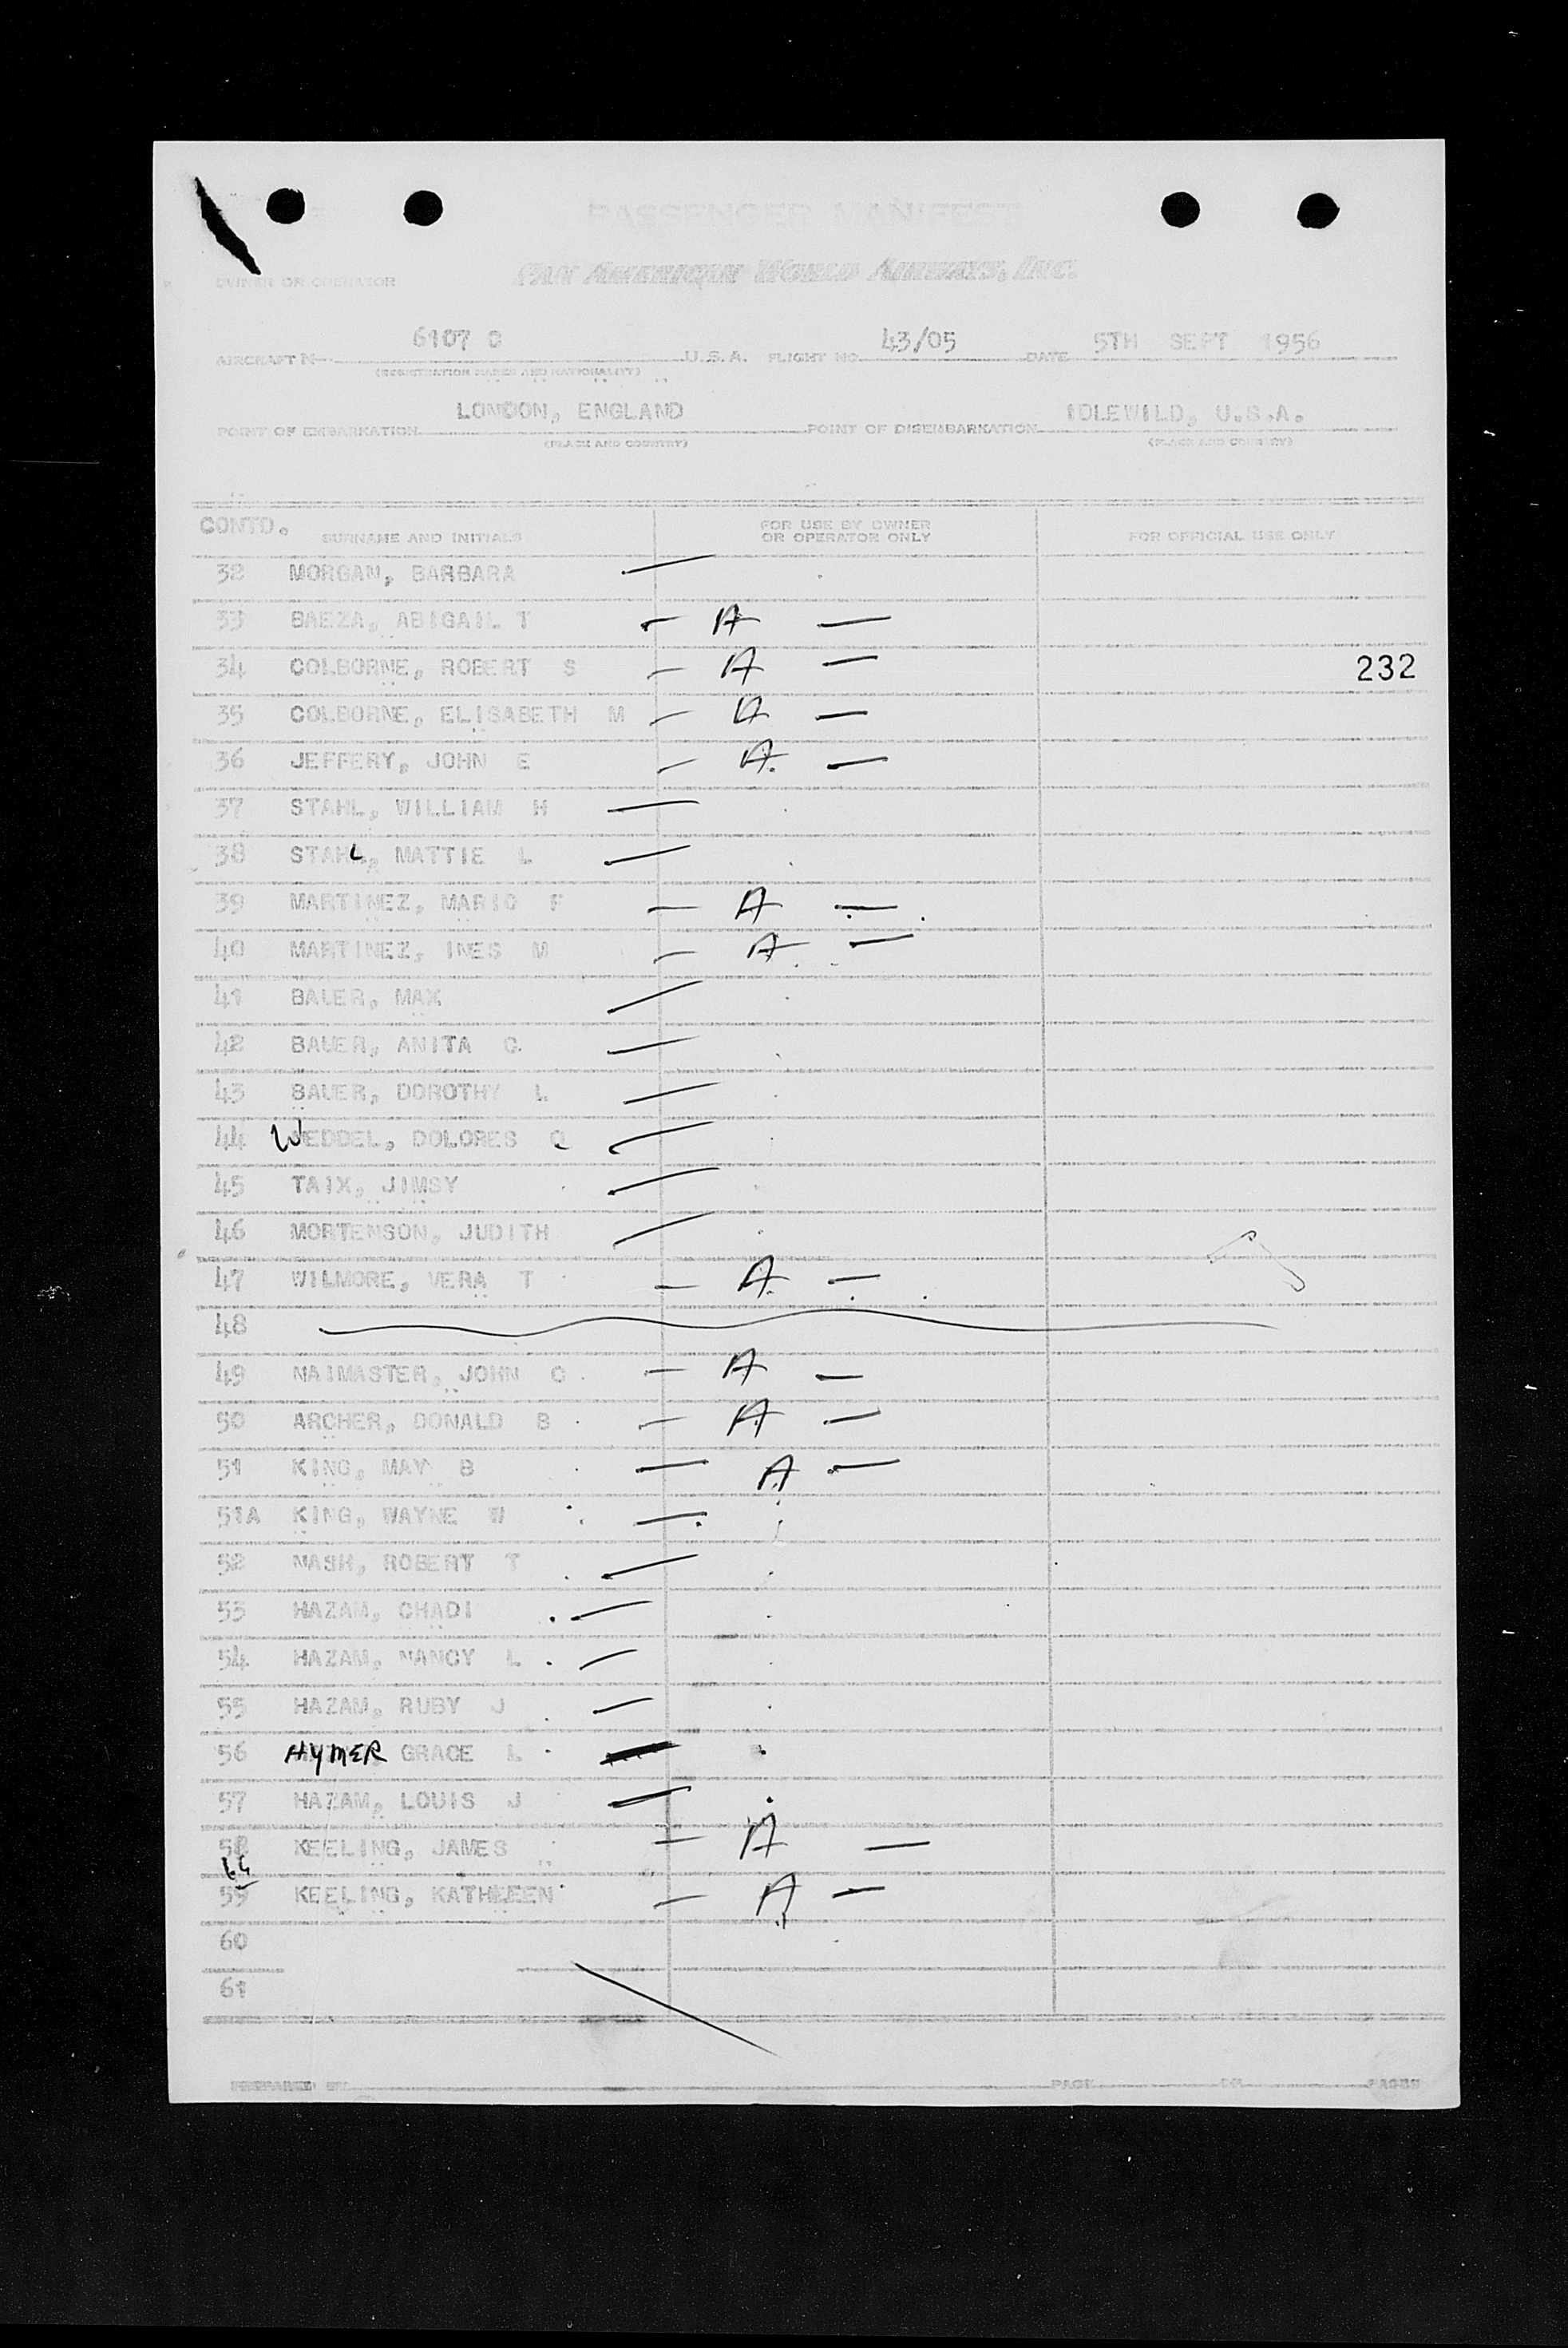 PASSENGER MANIFEST
OWNER OR OPERATOR PAN AMERICAN WORLD AIRWAYS, INC.
AIRCRAFT N 6107 C U.S.A. FLIGHT NO. 43/05 DATE 5TH SEPT 1956
(REGISTRATION MARKS AND NATIONALITY)
POINT OF EMBARKATION LONDON, ENGLAND POINT OF DISEMBARKATION IDLEWILD, U.S.A.
(PLACE AND COUNTRY) (PLACE AND COUNTRY)
CONTD. SURNAME AND INITIALS FOR USE BY OWNER OR OPERATOR ONLY FOR OFFICIAL USE ONLY
32 MORGAN, BARBARA —
33 BAEZA, ABIGAIL T — A —
34 COLBORNE, ROBERT S — A — 232
35 COLBORNE, ELISABETH M — A —
36 JEFFERY, JOHN E — A —
37 STAHL, WILLIAM H —
38 STAHL, MATTIE L —
39 MARTINEZ, MARIO F — A —
40 MARTINEZ, INES M — A —
41 BAUER, MAX —
42 BAUER, ANITA C —
43 BAUER, DOROTHY L —
44 WEDDEL, DOLORES Q —
45 TAIX, JIMSY —
46 MORTENSON, JUDITH —
47 WILMORE, VERA T — A —
48
49 NAIMASTER, JOHN C — A —
50 ARCHER, DONALD B — A —
51 KING, MAY B — A —
51A KING, WAYNE W —
52 NASH, ROBERT T —
53 HAZAM, CHADI —
54 HAZAM, NANCY L —
55 HAZAM, RUBY J —
56 HYMER GRACE L —
57 HAZAM, LOUIS J —
58 KEELING, JAMES — A —
59 KEELING, KATHLEEN — A —
60
61
PREPARED BY PAGE OF PAGES